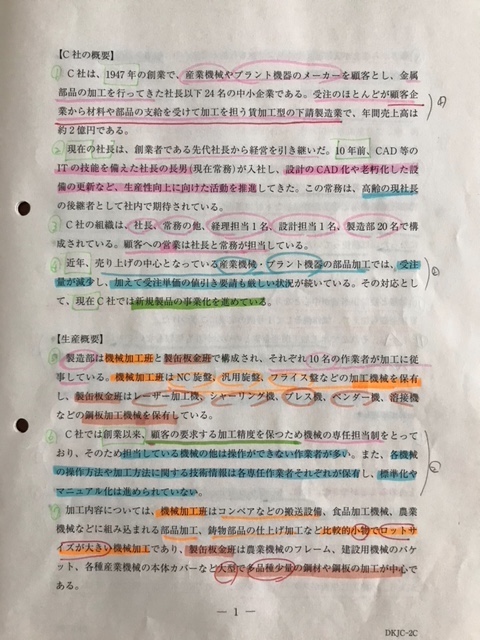 【C社の概要】
① C社は、1947年の創業で、産業機械やプラント機器のメーカーを顧客とし、金属
部品の加工を行ってきた社長以下24名の中小企業である。受注のほとんどが顧客企
業から材料や部品の支給を受けて加工を担う賃加工型の下請製造業で、年間売上高は
約2億円である。
② 現在の社長は、創業者である先代社長から経営を引き継いだ。10年前、CAD等の
ITの技能を備えた社長の長男(現在常務)が入社し、設計のCAD化や老朽化した設
備の更新など、生産性向上に向けた活動を推進してきた。この常務は、高齢の現社長
の後継者として社内で期待されている。
③ C社の組織は、社長、常務の他、経理担当1名、設計担当1名、製造部20名で構
成されている。顧客への営業は社長と常務が担当している。
④ 近年、売り上げの中心となっている産業機械・プラント機器の部品加工では、受注
量が減少し、加えて受注単価の値引き要請も厳しい状況が続いている。その対応とし
て、現在C社では新規製品の事業化を進めている。
【生産概要】
⑤ 製造部は機械加工班と製缶板金班で構成され、それぞれ10名の作業者が加工に従
事している。機械加工班はNC旋盤、汎用旋盤、フライス盤などの加工機械を保有
し、製缶板金班はレーザー加工機、シャーリング機、プレス機、ベンダー機、溶接機
などの鋼板加工機械を保有している。
⑥ C社では創業以来、顧客の要求する加工精度を保つため機械の専任担当制をとって
おり、そのため担当している機械の他は操作ができない作業者が多い。また、各機械
の操作方法や加工方法に関する技術情報は各専任作業者それぞれが保有し、標準化や
マニュアル化は進められていない。
⑦ 加工内容については、機械加工班はコンベアなどの搬送設備、食品加工機械、農業
機械などに組み込まれる部品加工、鋳物部品の仕上げ加工など比較的小物でロットサ
イズが大きい機械加工であり、製缶板金班は農業機械のフレーム、建設用機械のバケ
ット、各種産業機械の本体カバーなど大型で多品種少量の鋼材や鋼板の加工が中心で
ある。
— 1 —
DKJC-2C